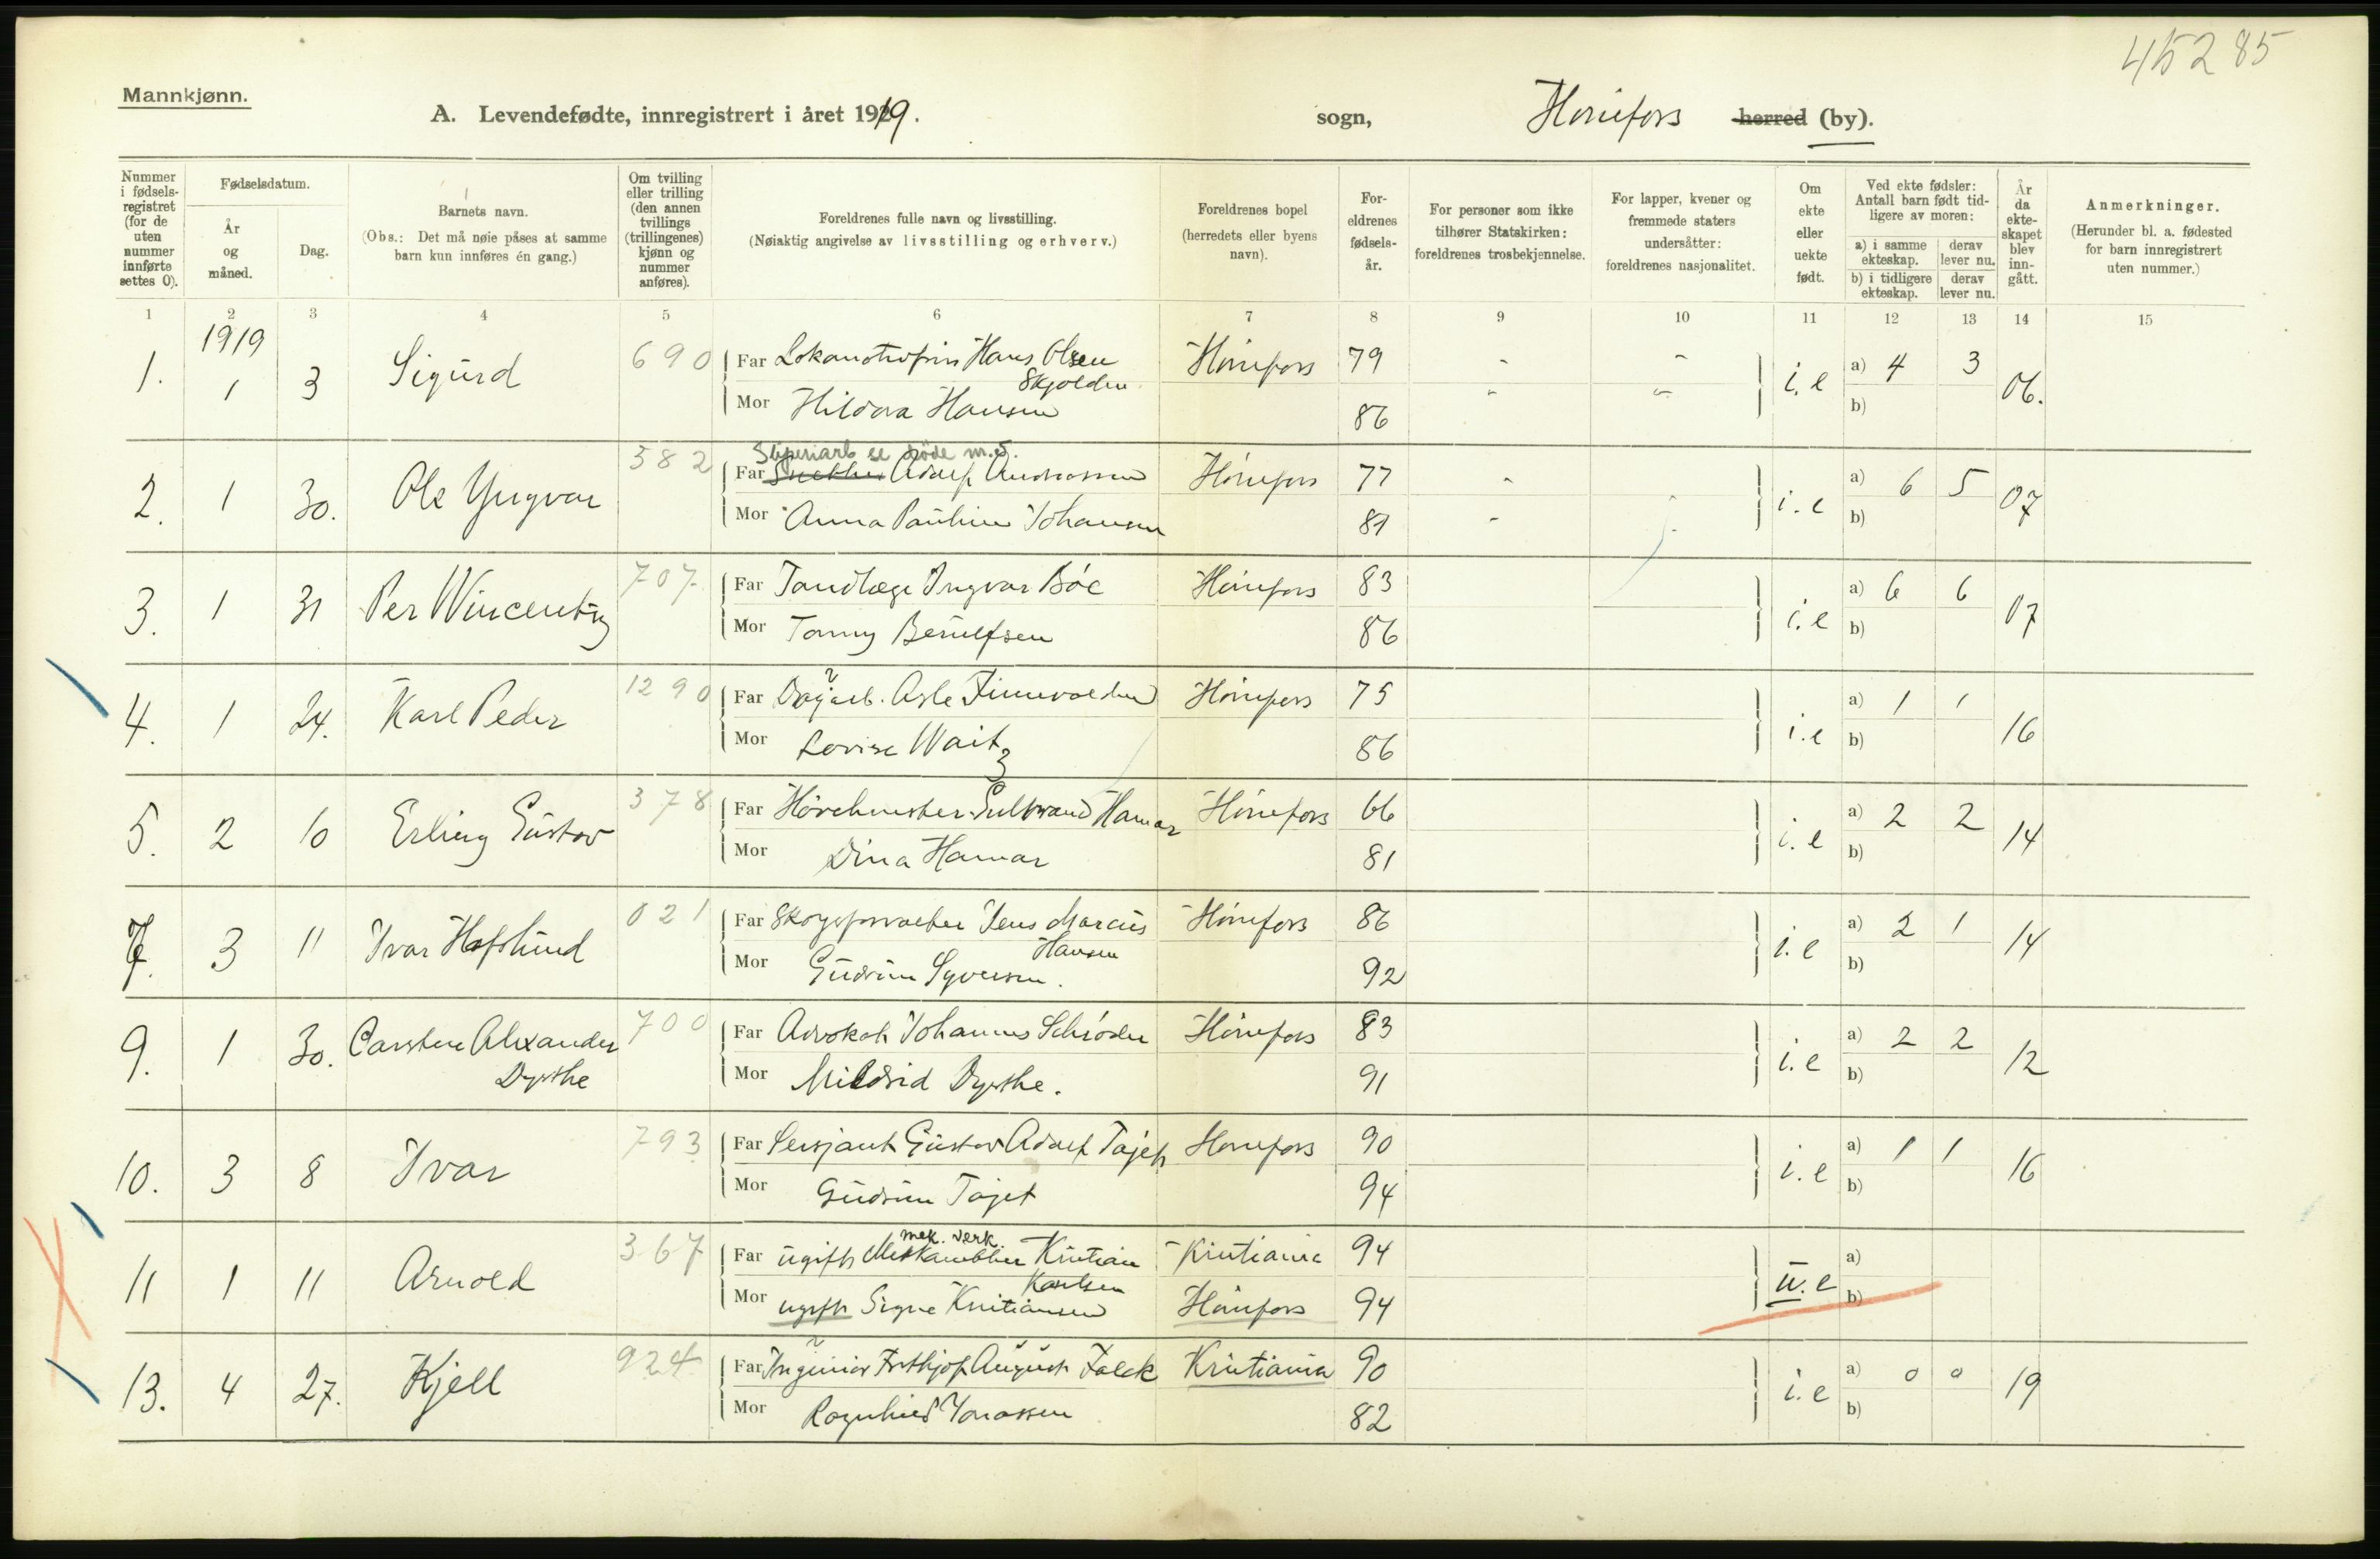 45285
Mannkjønn.
A. Levendefødte, innregistrert i året 1919.
sogn, Hønefoss herred (by).
Nummer i fødsels-registret (for de uten nummer innførte settes 0).
Fødselsdatum.
År og måned.
Dag.
Barnets navn.
(Obs.: Det må nøie påses at samme barn kun innføres én gang.)
Om tvilling eller trilling (den annen tvillings (trillingenes) kjønn og nummer anføres).
Foreldrenes fulle navn og livsstilling.
(Nøiaktig angivelse av livsstilling og erhverv.)
Foreldrenes bopel (herredets eller byens navn).
For-eldrenes fødsels-år.
For personer som ikke tilhører Statskirken: foreldrenes trosbekjennelse.
For lapper, kvener og fremmede staters undersåtter: foreldrenes nasjonalitet.
Om ekte eller uekte født.
Ved ekte fødsler: Antall barn født tid-ligere av moren:
a) i samme ekteskap.
derav lever nu.
b) i tidligere ekteskap.
derav lever nu.
År da ekte-skapet blev inn-gått.
Anmerkninger.
(Herunder bl. a. fødested for barn innregistrert uten nummer.)
1 2 3 4 5 6 7 8 9 10 11 12 13 14 15
1919
1. 1 3 Sigurd 690 Far Hans Olsen Hønefoss 79 - - i.e a) 4 3 06.
Skjolden
Mor Hildora Hansen 86 - - b)
2. 1 30. Ole Yngvar 582 Sliperiarb se døde m.5.
Far Snekker Adolf Andreassen Hønefoss 77 - i.e a) 6 5 07
Mor Anna Pauline Johansen 81 - b)
3. 1 31 Per Wincentz 707 Far Tandlæge Yngvar Bøe Hønefoss 83 i.e a) 6 6 07
Mor Tonny Berulfsen 86 b)
4. 1 24. Karl Peder 1290 Far Asle Hønefoss 75 i.e a) 1 1 16
Mor Lovise Waitz 86 b)
5. 2 10 Erling Gustav 378 Far Gulbrand Hamar Hønefoss 66 i.e a) 2 2 14
Mor Dina Hamar 81 b)
7. 3 11 Ivar Hofslund 021 Far Skogsforvalter Jens Marcus Hønefoss 86 i.e a) 2 1 14
Hansen
Mor Gudrun Syversen. 92 b)
9. 1 30. Carsten Alexander 700 Far Advokat Johannes Schrøder Hønefoss 83 i.e a) 2 2 12
Dyrthe
Mor Mildrid Dyrthe. 91 b)
10. 3 8 Ivar 793 Far Sersjant Gustav Adolf Tajet Hønefoss 90 i.e a) 1 1 16
Mor Gudrun Tajet 94 b)
mek. verk.
11 1 11 Arnold 367 Far ugift Kristian Kristiania 94 u.e a)
Karlsen
Mor ugift Signe Kristiansen Hønefoss 94 b)
13. 4 27. Kjell 924 Far Ingeniør Frithjof August Falck Kristiania 90 i.e a) 0 0 19
Mor Ragnhild Jonassen 82 b)